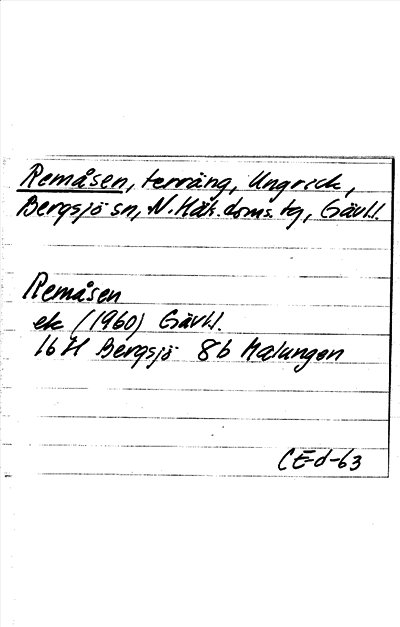 Remåsen, terräng, Ungrick,
Bergsjö sn, N. Häls. doms. tg, Gävl.
Remåsen
ek (1960) Gävl.
16H Bergsjö 8b Malungen
CE-d-63